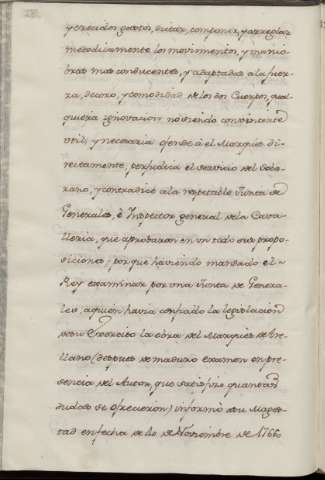 y crecidos gastos, dictar, componer, y arreglar
metodicamente los movimientos, y manio
bras mas conducentes, y adaptadas a la fuer
za, decoro, y comodidad de los dos Cuerpos, qual
quiera ynovacion no siendo conocidamente
util, y necesaria ofende á el Marqués di-
rectamente, perjudica el servicio del Sobe-
rano, y contradice a la respetable Junta de
Generales, è Inspector general de la Cava-
lleria, que aprobaron en un todo sus propo-
siciones; porque haviendo mandado el
Rey examinar por una Junta de Genera-
les, aquien havia confiado la legislacion
de su Exercito la obra del Marqués de
(despues de maduro examen en pre-
sencia del Autor, que satisfizo quantas
dudas se ofrecieron) informó a su Mages-
tad en fecha de de Noviembre de 1766